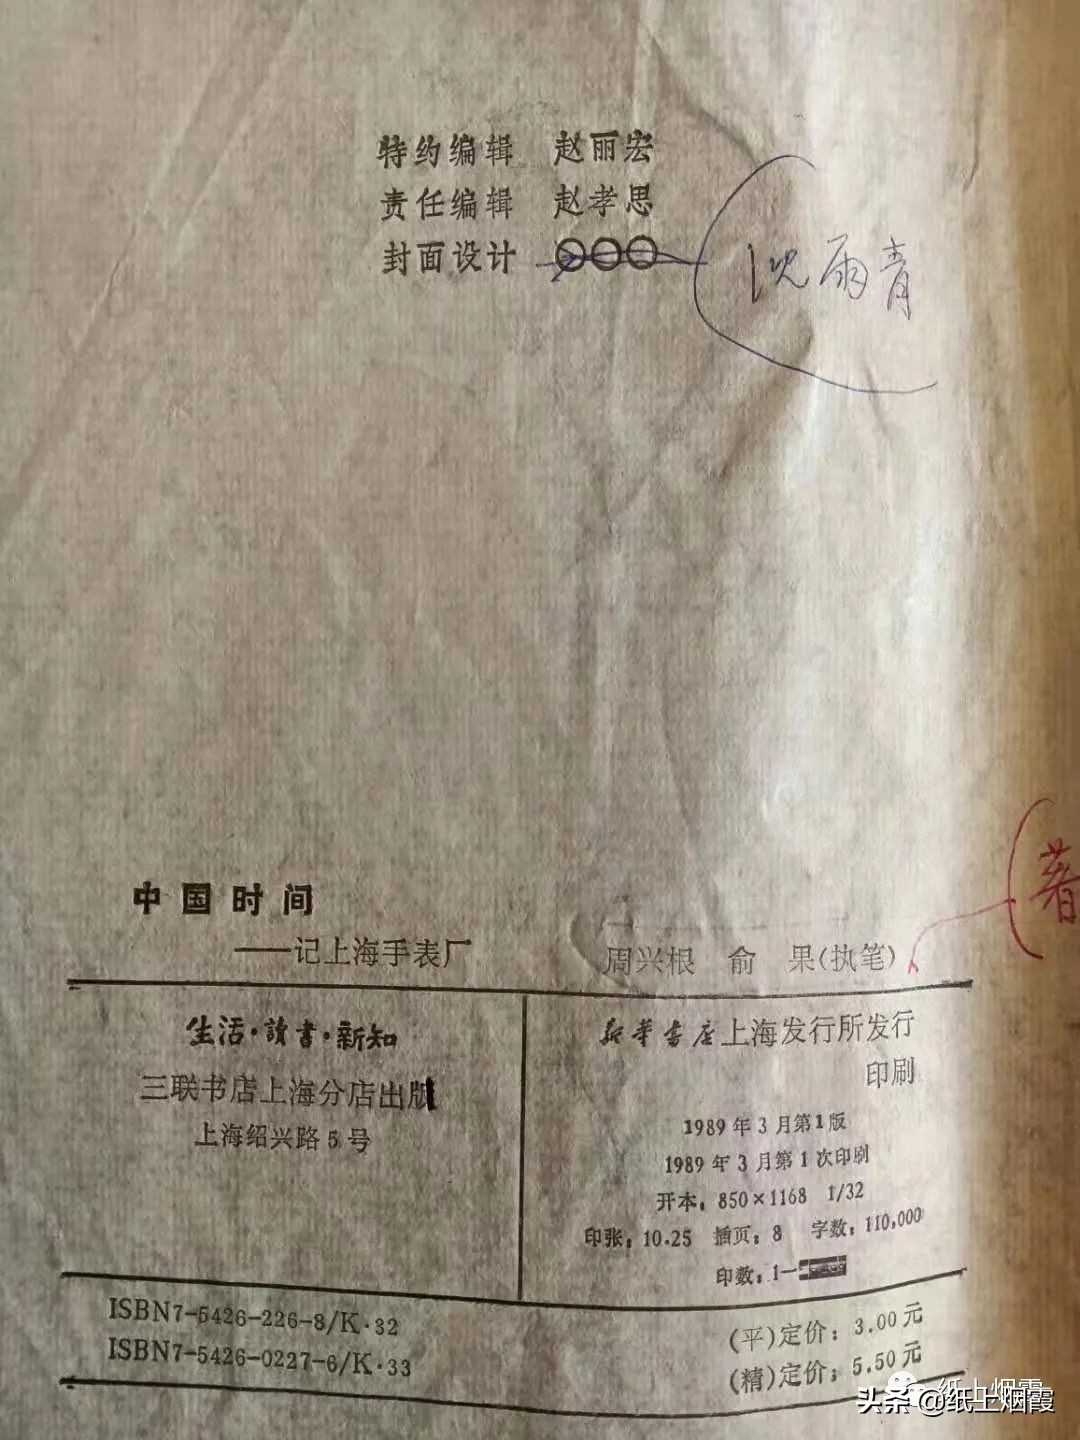 特约编辑 赵丽宏
责任编辑 赵孝思
封面设计 ○○○
沈雨青
中国时间
——记上海手表厂
周兴根 俞 果(执笔)
著
生活·讀書·新知
三联书店上海分店出版
上海绍兴路5号
新华书店上海发行所发行
印刷
1989年3月第1版
1989年3月第1次印刷
开本:850×1168 1/32
印张:10.25 插页:8 字数:110,000
印数:1—
ISBN7-5426-226-8/K·32
ISBN7-5426-0227-6/K·33
(平)定价:3.00元
(精)定价:5.50元
纸上烟霞
头条@纸上烟霞